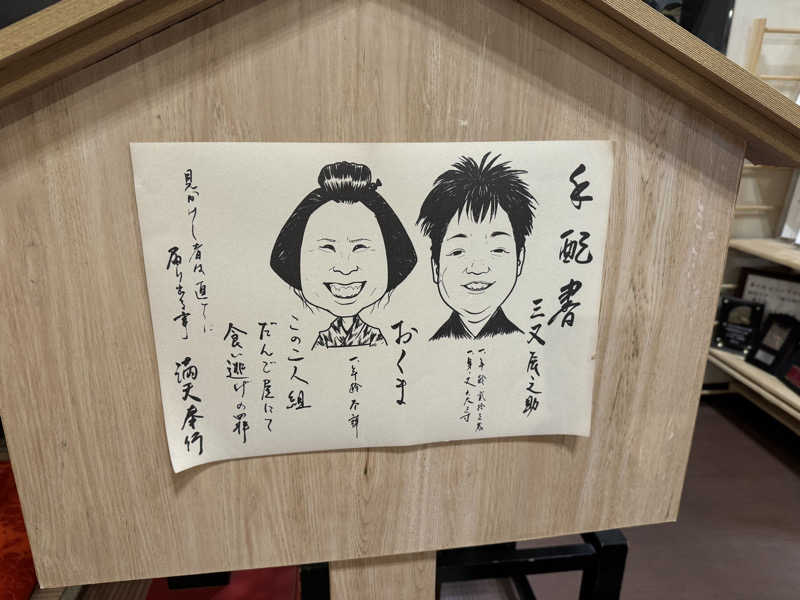 手配書
三又辰之助
一、年齢 弐拾三歳
一、身丈 六尺三寸
おくま
一、年齢 不詳
この二人組
だんご屋にて
食い逃げの罪
見かけし者は直ちに
届け出る事
満天奉行